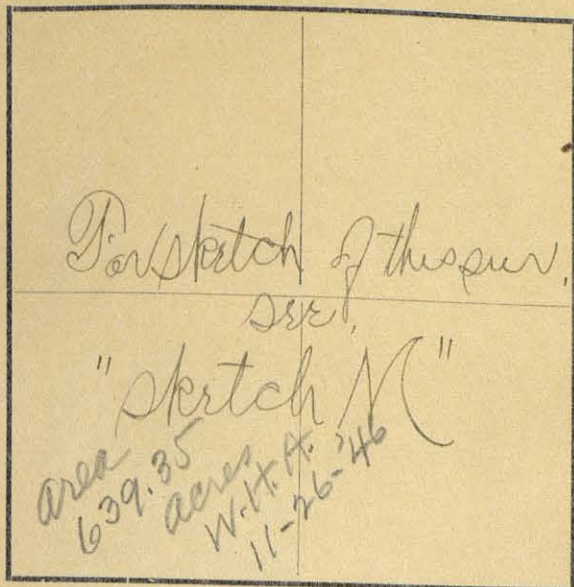 For sketch of this sur.
see,
"sketch M"
area
639.35
acres
W.H.A.
11-26-'46